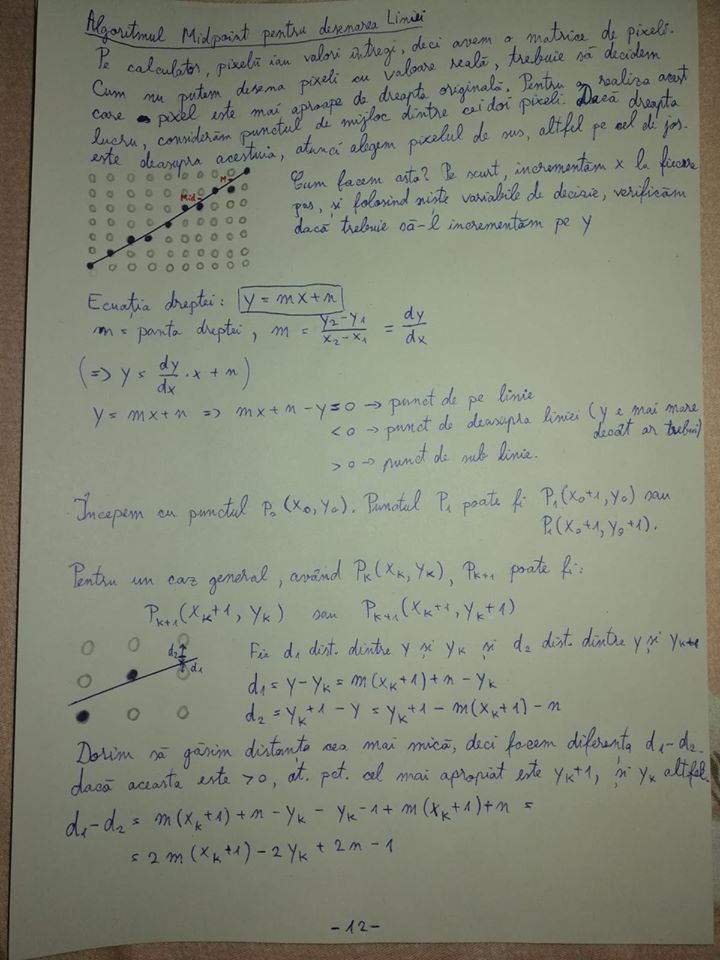 Algoritmul Midpoint pentru desenarea Liniei
Pe calculator, pixelii iau valori întregi, deci avem o matrice de pixeli.
Cum nu putem desena pixeli cu valoare reală, trebuie să decidem
care pixel este mai aproape de dreapta originală. Pentru a realiza acest
lucru, considerăm punctul de mijloc dintre cei doi pixeli. Dacă dreapta
este deasupra acestuia, atunci alegem pixelul de sus, altfel pe cel de jos.
M
Mid
Cum facem asta? Pe scurt, incrementăm x la fiecare
pas, și folosind niște variabile de decizie, verificăm
dacă trebuie să-l incrementăm pe y
Ecuația dreptei: y = mx+n
m = panta dreptei, m = (y2-y1)/(x2-x1) = dy/dx
(=> y = dy/dx · x + n)
y = mx+n => mx+n-y = 0 → punct de pe linie
< 0 → punct de deasupra liniei (y e mai mare
decât ar trebui)
> 0 → punct de sub linie.
Începem cu punctul P0(x0,y0). Punctul P1 poate fi P1(x0+1, y0) sau
P1(x0+1, y0+1).
Pentru un caz general, având Pk(xk, yk), Pk+1 poate fi:
Pk+1(xk+1, yk) sau Pk+1(xk+1, yk+1)
d2
d1
Fie d1 dist. dintre y și yk și d2 dist. dintre y și yk+1
d1 = y-yk = m(xk+1)+n-yk
d2 = yk+1-y = yk+1-m(xk+1)-n
Dorim să găsim distanța cea mai mică, deci facem diferența d1-d2.
dacă aceasta este >0, at. pct. cel mai apropiat este yk+1, și yk altfel.
d1-d2 = m(xk+1)+n-yk-yk-1+m(xk+1)+n =
= 2m(xk+1)-2yk+2n-1
-12-